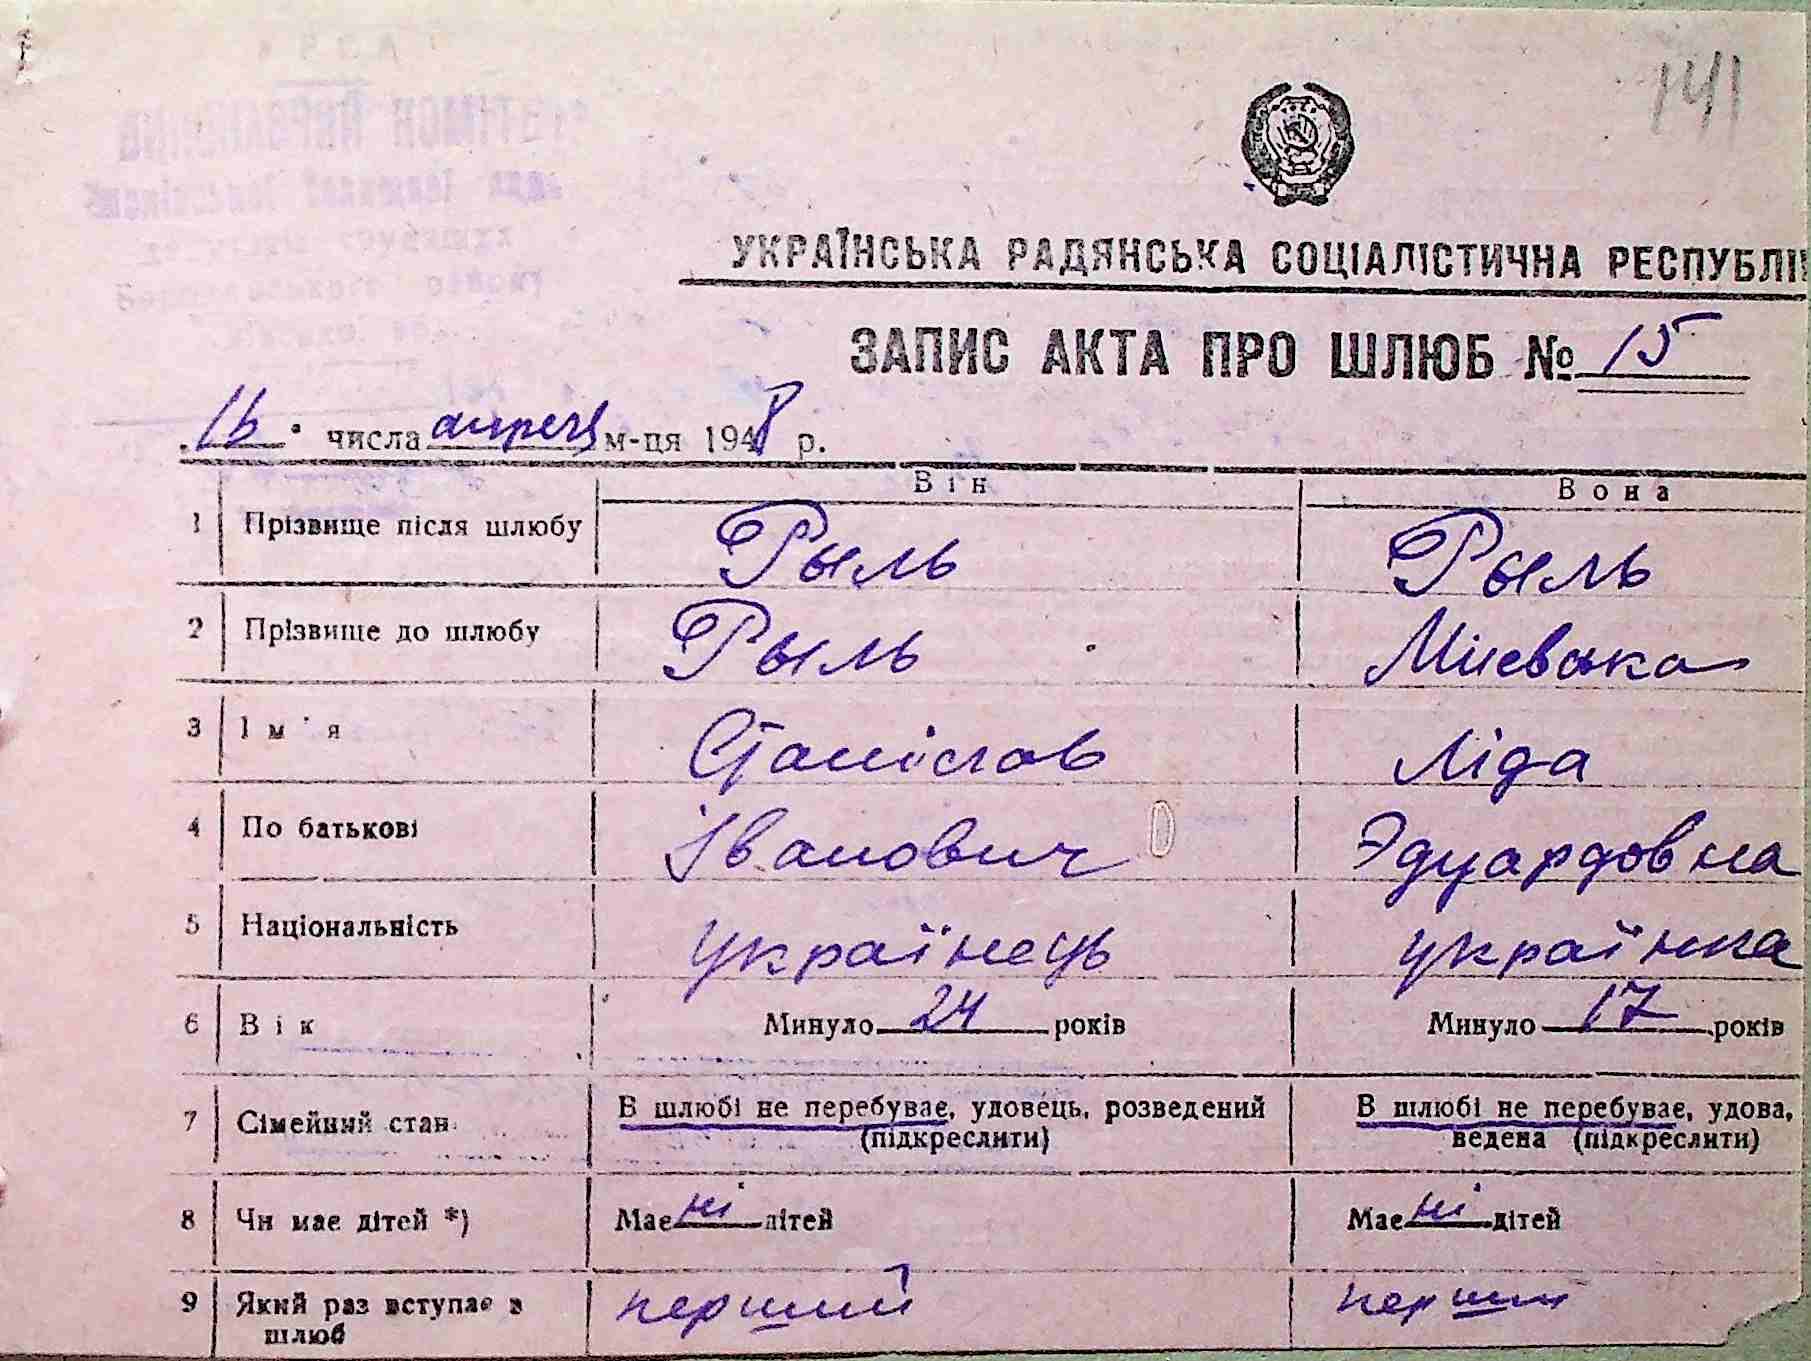 141
УКРАЇНСЬКА РАДЯНСЬКА СОЦІАЛІСТИЧНА РЕСПУБЛІ
ЗАПИС АКТА ПРО ШЛЮБ № 15
числа апреля м-ця 1948 р.
Він Вона
1 Прізвище після шлюбу Рыль Рыль
2 Прізвище до шлюбу Рыль
3 Ім'я Станіслав Ліда
4 По батькові Іванович Эдуардовна
5 Національність українець українка
6 Вік Минуло 24 років Минуло 17 років
7 Сімейний стан В шлюбі не перебуває, удовець, розведений В шлюбі не перебуває, удова,
(підкреслити) ведена (підкреслити)
8 Чи має дітей *) Має ні дітей Має ні дітей
9 Який раз вступає в перший перший
шлюб